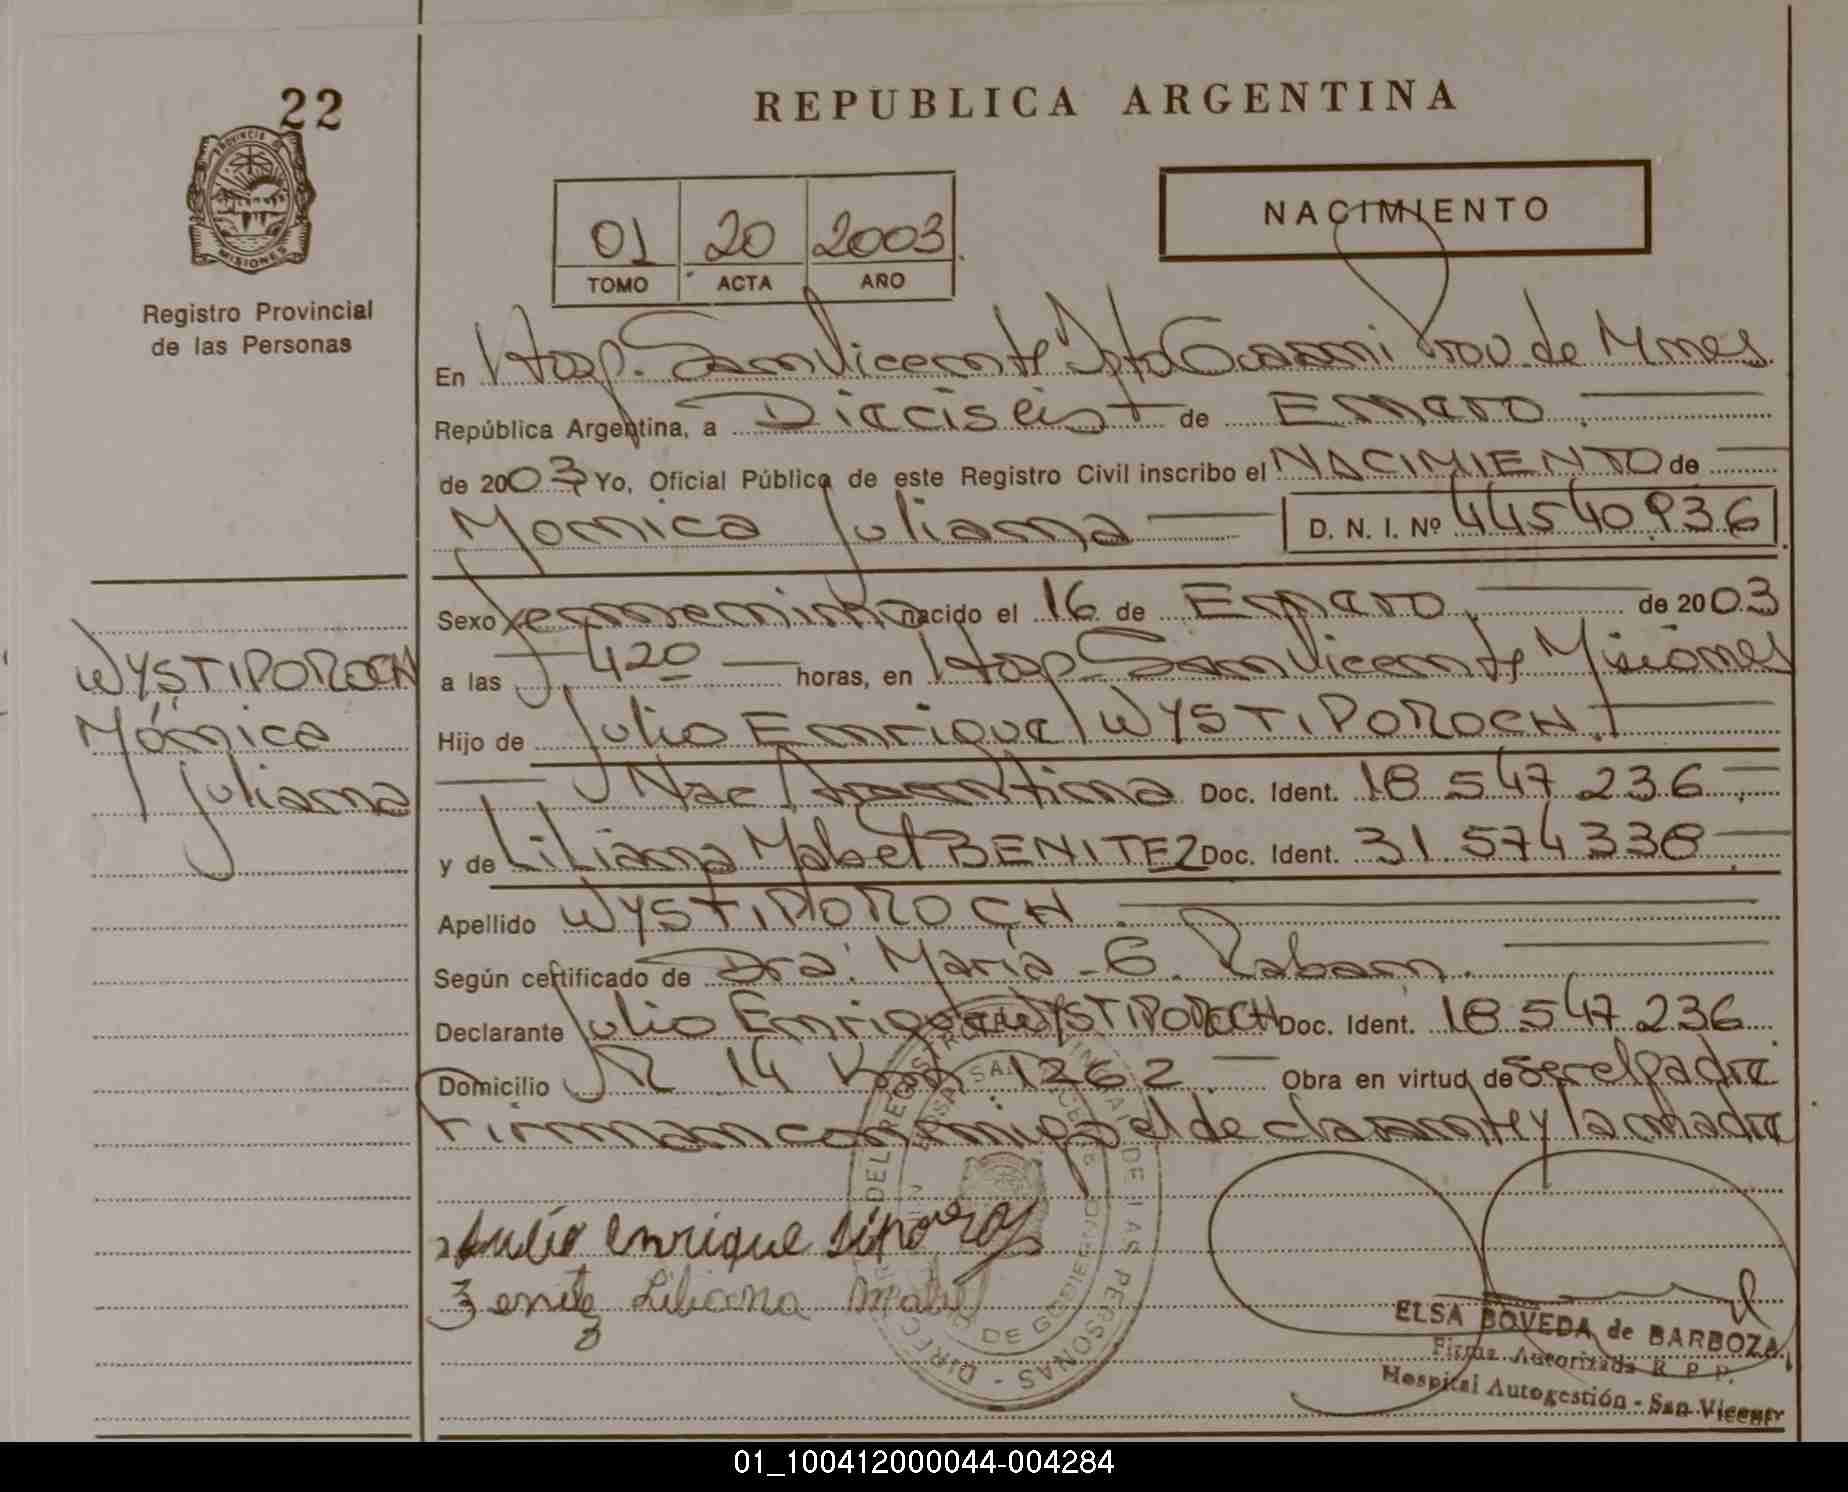 22
REPUBLICA ARGENTINA
PROVINCIA DE
MISIONES
Registro Provincial
de las Personas
01 20 2003
TOMO ACTA AÑO
NACIMIENTO
En Hosp. San Vicente Dpto Guarani Prov. de Mnes
República Argentina, a Dieciseis de Enero
de 2003 Yo, Oficial Público de este Registro Civil inscribo el NACIMIENTO de
Monica Juliana D. N. I. Nº 44540936
Sexo femenino nacido el 16 de Enero de 2003
WYSTIPOROCH
Mónica
Juliana
a las 420 horas, en Hosp San Vicente Misiones
Hijo de Julio Enrique WYSTIPOROCH
Nac Argentina Doc. Ident. 18 547 236
y de Liliana Mabel BENITEZ Doc. Ident. 31 574 338
Apellido WYSTIPOROCH
Según certificado de Dra. María G.
Declarante Julio Enrique WYSTIPOROCH Doc. Ident. 18 547 236
Domicilio R 14 Km 1262 Obra en virtud de ser el padre
Firman conmigo el declarante y la madre
Julio enrique
Benitez Liliana Mabel
ELSA BOVEDA de BARBOZA
Firma Autorizada R. P. P.
Hospital Autogestión - San Vicente
01_100412000044-004284